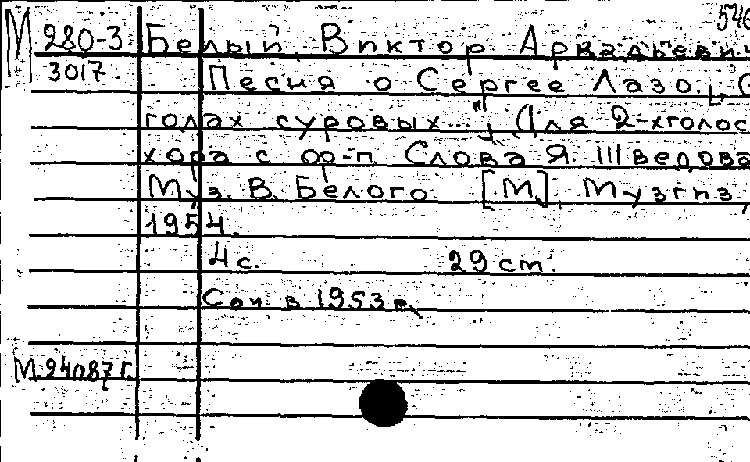 546
М 980-3 Белый, Виктор Аркадьеви
3017. Песня о Сергее Лазо. С
голах суровых..." Для 2-хголос
хора с ф-п Слова Я. Шведова
Муз. В. Белого [М], Музгиз,
1954.
4 с. 29 ст.
Соч. в 1953 г.
М. 24087 г.